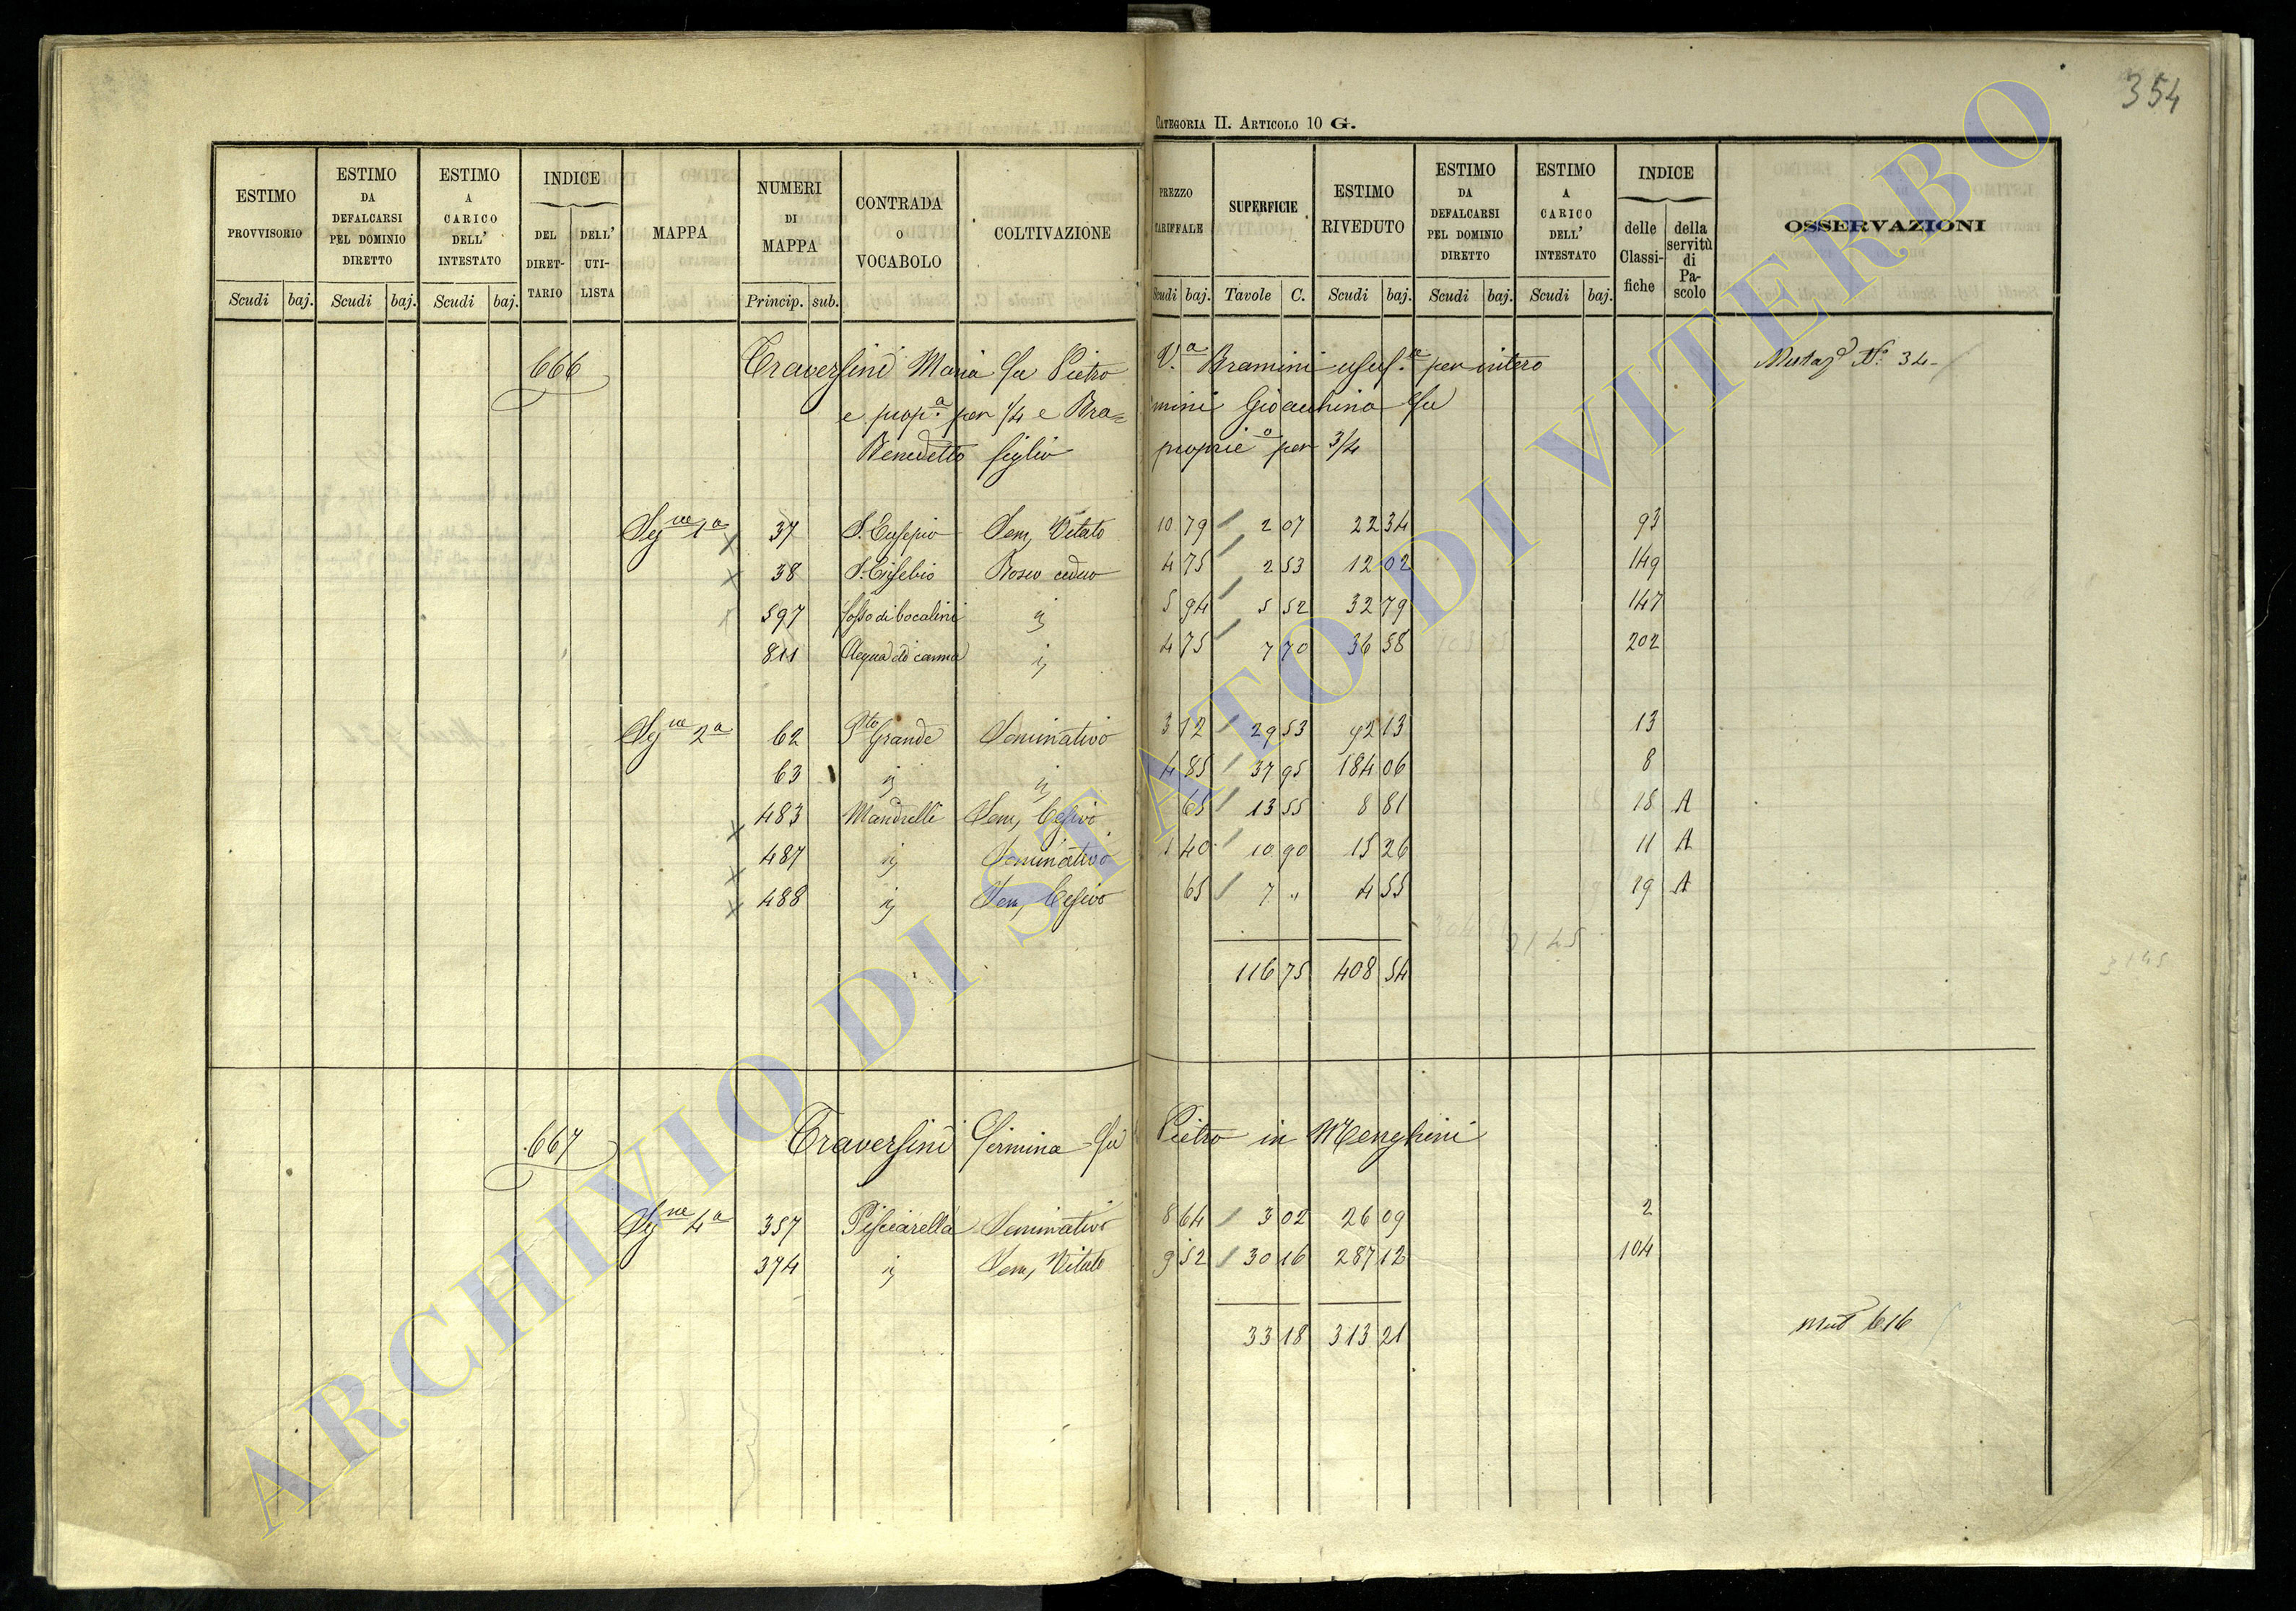 354
CATEGORIA II. ARTICOLO 10 G.
ESTIMO PROVVISORIO Scudi baj. ESTIMO DA DEFALCARSI PEL DOMINIO DIRETTO Scudi baj. ESTIMO A CARICO DELL' INTESTATO Scudi baj. INDICE DEL DIRET-TARIO DELL' UTI-LISTA MAPPA NUMERI DI MAPPA Princip. sub. CONTRADA O VOCABOLO COLTIVAZIONE PREZZO TARIFFALE Scudi baj. SUPERFICIE Tavole C. ESTIMO RIVEDUTO Scudi baj. ESTIMO DA DEFALCARSI PEL DOMINIO DIRETTO Scudi baj. ESTIMO A CARICO DELL' INTESTATO Scudi baj. INDICE delle Classi-fiche della servitù di Pa-scolo OSSERVAZIONI
666 Traversini Maria fu Pietro V.a Bramini usuf. per intero Mutaz N.o 34
e prop.a per 1/4 e Bra= mini Gioacchino fu
Benedetto figlio proprie.o per 3/4
Sez.ne 1a 37 S. Eusepio Sem, Vitato 10 79 2 07 22 34 93
38 S. Eusebio Bosco ceduo 4 75 2 53 12 02 149
597 Fosso di bocalini ij 5 94 5 52 32 79 147
811 Acqua di canna ij 4 75 7 70 36 58 202
Sez.ne 2a 62 Grande Seminativo 3 12 29 53 92 13 13
63 ij ij 4 85 37 95 184 06 8
483 Mandrelle Sem, Cesivo 65 13 55 8 81 18 A
487 ij Seminativo 1 40 10 90 15 26 11 A
488 ij Sem, Cesivo 65 7 " 4 55 19 A
116 75 408 54
667 Traversini Firmina fu Pietro in Menghini
Sez.ne 4a 357 Pisciarella Seminativo 8 64 3 02 26 09 2
374 ij Sem, Vitato 9 52 30 16 287 12 104
33 18 313 21
mut 616
ARCHIVIO DI STATO DI VITERBO